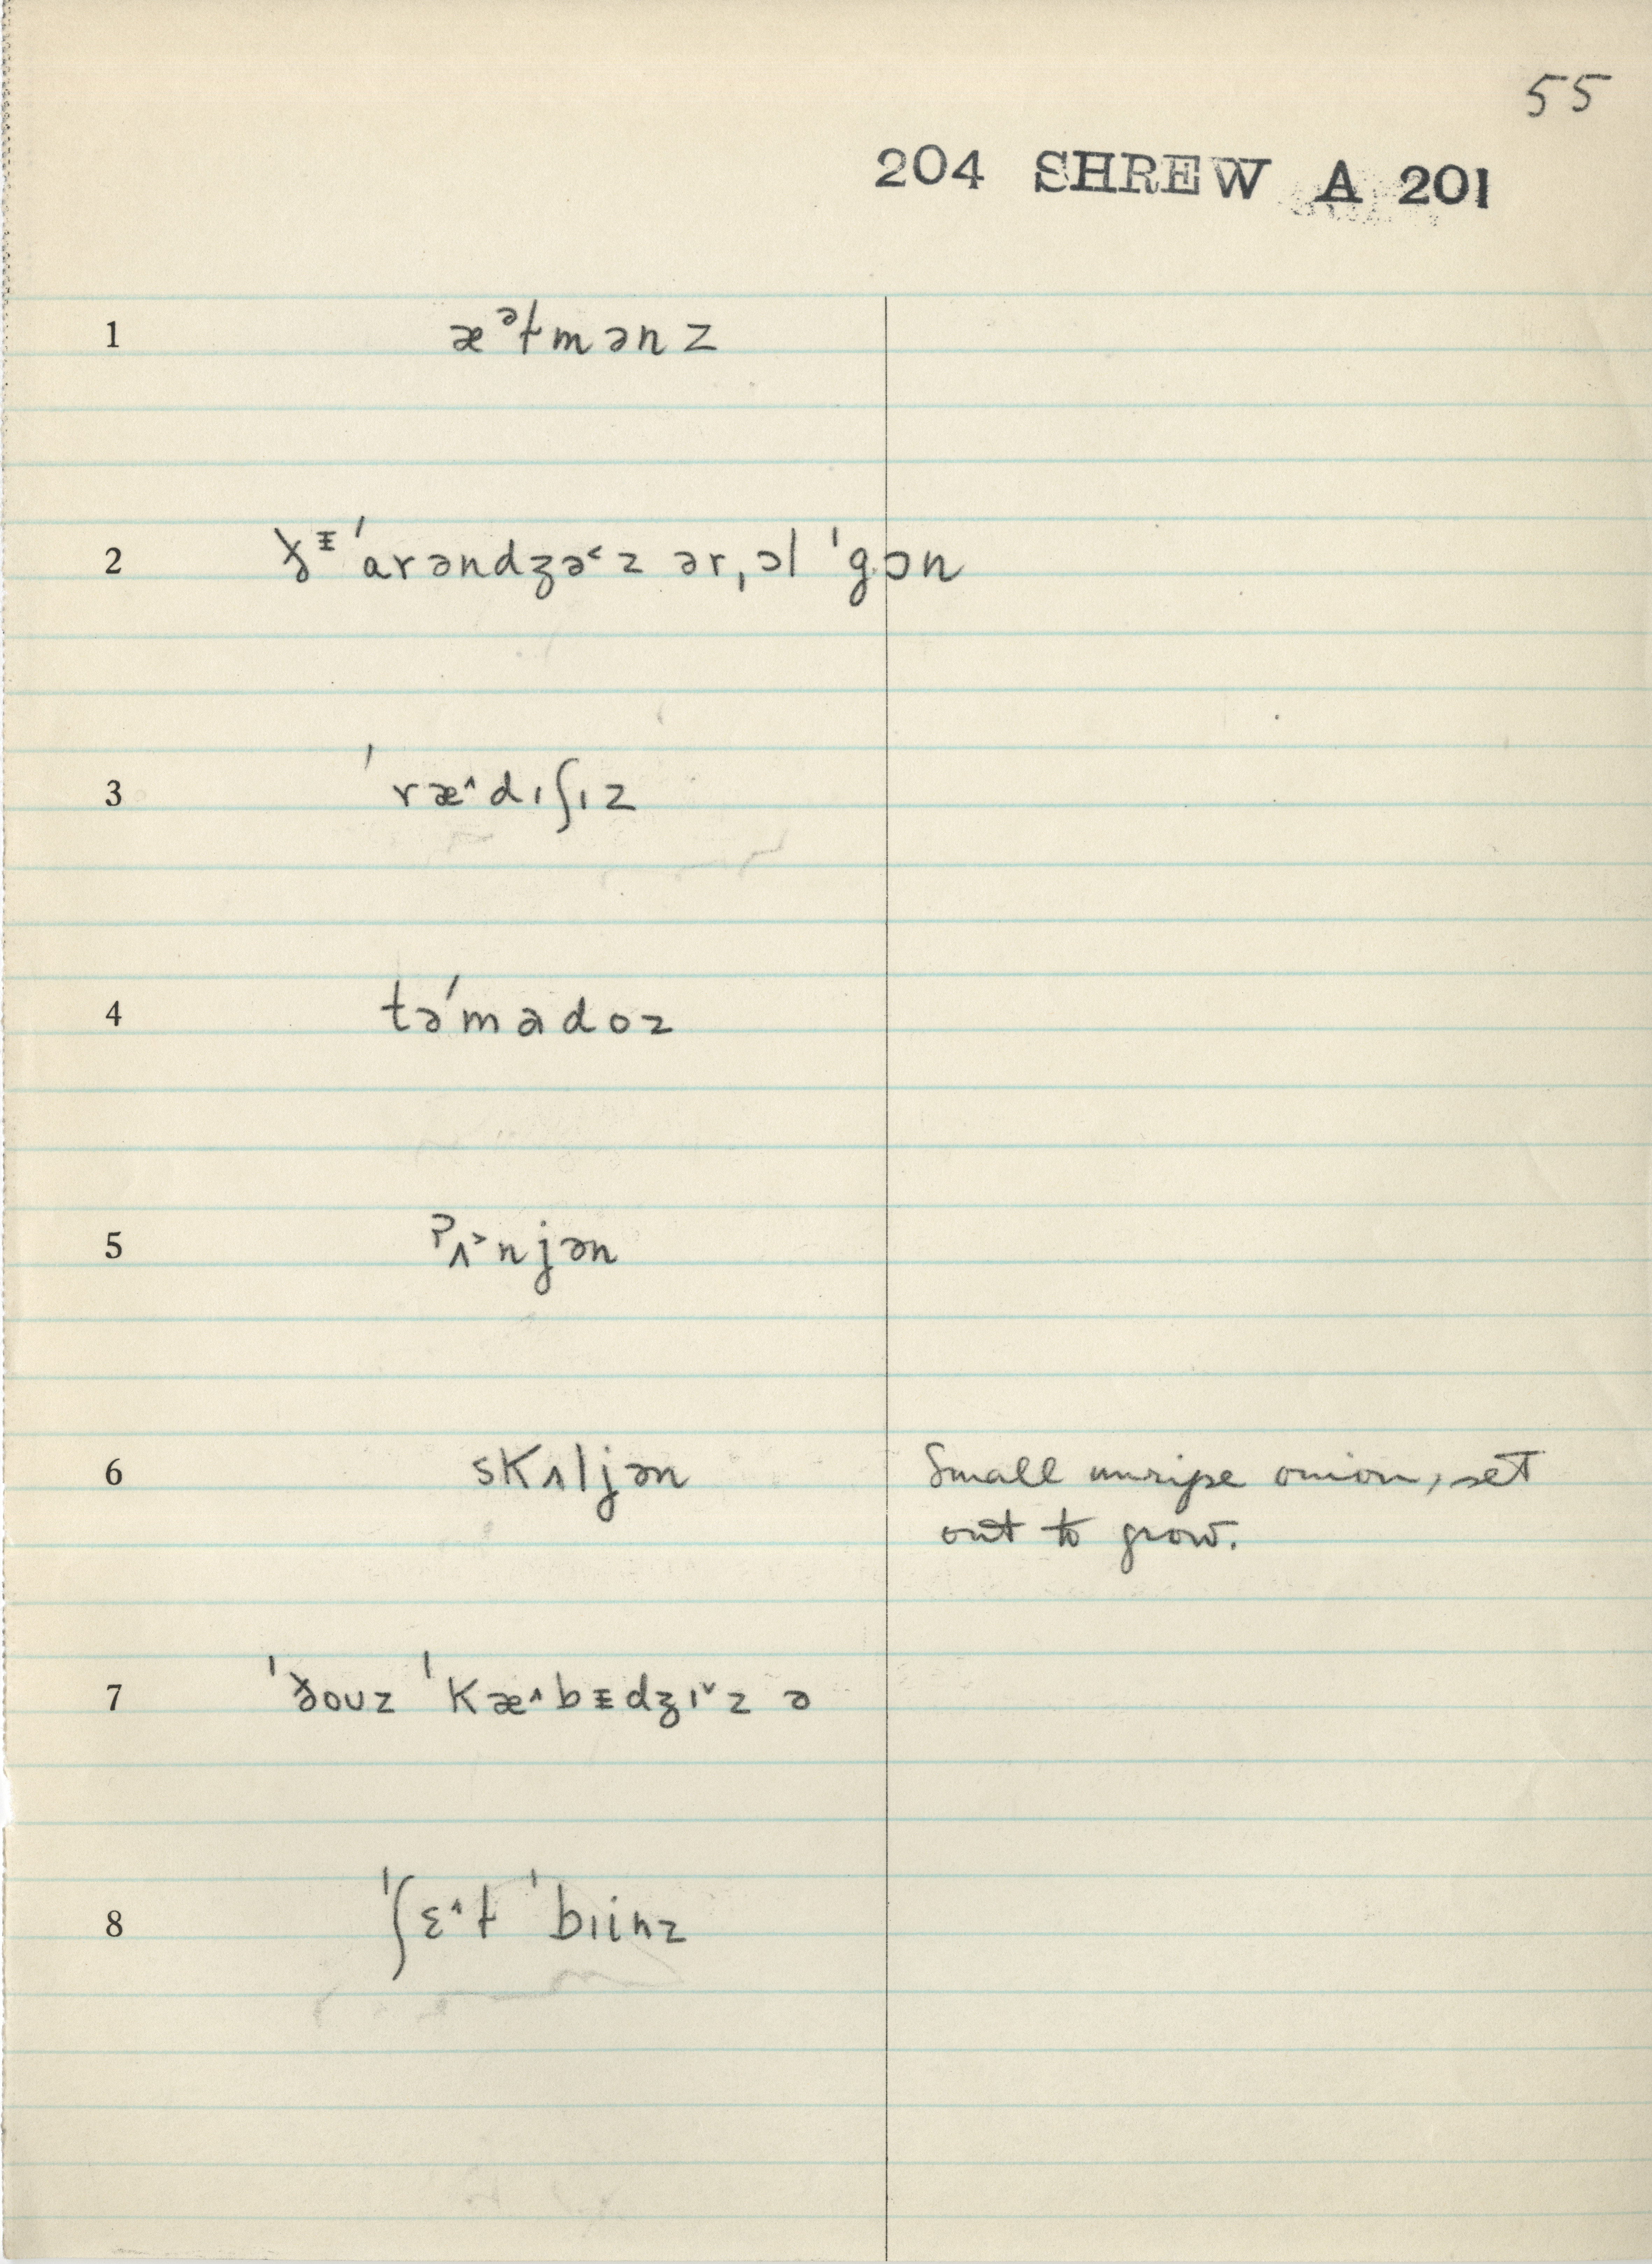 55
204 SHREW A 201
1 æᵊɫmənz
2 ðᵻ ˈarəndʒə˂z ər ˌɔl ˈgɔn
3 ˈræ˄dɪʃɪz
4 təˈmadoz
5 ʔʌ˃njən
6 skʌljən Small unripe onion, set
out to grow.
7 ˈðouz ˈkæ˄bᵻdʒɪ˅z ə
8 ˈʃɛ˄ɫ ˈbɪinz